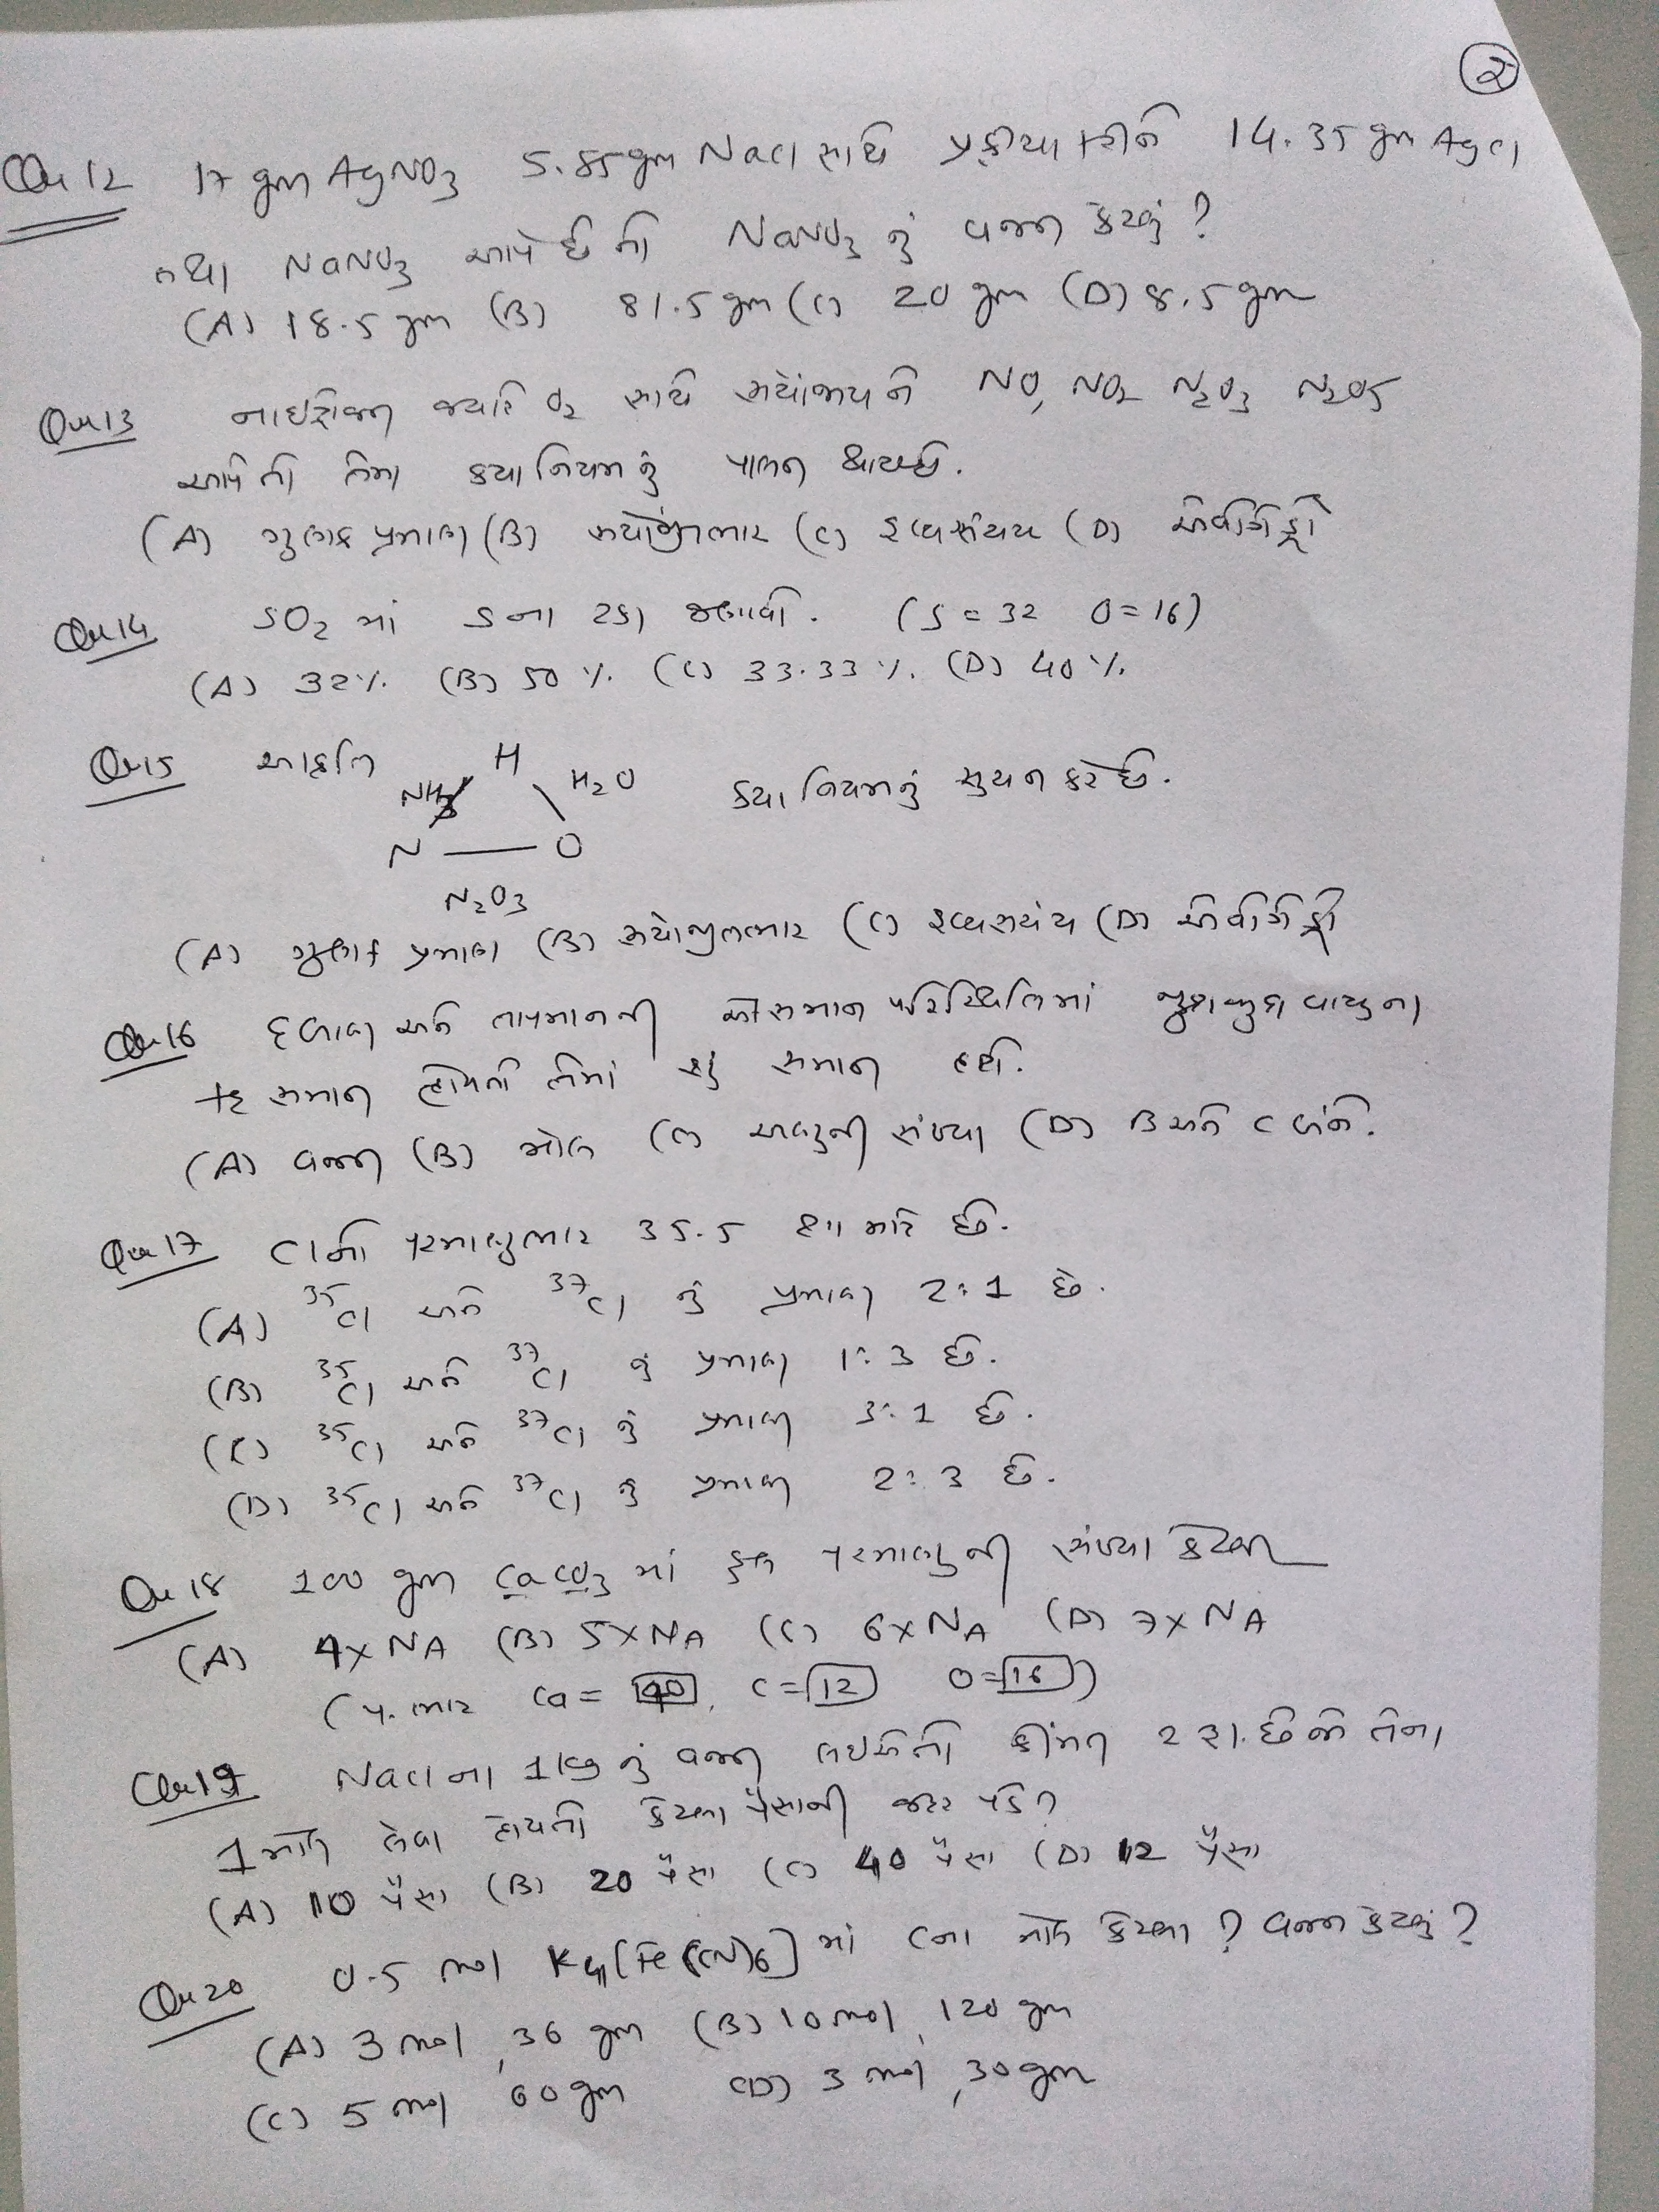 ②
Que 12 17 gm AgNO3 5.85 gm NaCl સાથે પ્રક્રીયા કરીને 14.35 gm AgCl
તથા NaNO3 આપે છે તો NaNO3 નું વજન કેટલું?
(A) 18.5 gm (B) 81.5 gm (C) 20 gm (D) 8.5 gm
Que 13 નાઇટ્રોજન જ્યારે O2 સાથે સંયોજાયને NO, NO2 N2O3 N2O5
આપે તો તેમા કયા નિયમનું પાલન થાય છે.
(A) ગુણક પ્રમાણ (B) સંયોજીતભાર (C) દ્રવ્યસંચય (D) એવોગેડ્રો
Que 14 SO2 માં S ના ટકા જણાવો. (S = 32 O = 16)
(A) 32% (B) 50% (C) 33.33% (D) 40%
Que 15 આકૃતિ કયા નિયમનું સુચન કરે છે.
H
NH3 H2O
N — O
N2O3
(A) ગુણક પ્રમાણ (B) સંયોજીતભાર (C) દ્રવ્યસંચય (D) એવોગેડ્રો
Que 16 દબાણ અને તાપમાનની એકસમાન પરિસ્થિતિમાં જુદાજુદા વાયુના
કદ સમાન હોયતો તેમાં શું સમાન હશે.
(A) વજન (B) મોલ (C) અણુની સંખ્યા (D) B અને C બંને.
Que 17 Cl નો પરમાણુભાર 35.5 શા માટે છે.
(A) 35Cl અને 37Cl નું પ્રમાણ 2:1 છે.
(B) 35Cl અને 37Cl નું પ્રમાણ 1:3 છે.
(C) 35Cl અને 37Cl નું પ્રમાણ 3:1 છે.
(D) 35Cl અને 37Cl નું પ્રમાણ 2:3 છે.
Que 18 100 gm CaCO3 માં કુલ પરમાણુની સંખ્યા કેટલી
(A) 4×NA (B) 5×NA (C) 6×NA (D) 7×NA
(પ. ભાર Ca = 40, C = 12 O = 16)
Que 19 NaCl ના 1 kg નું વજન લઇએ તો કીંમત 2 રૂા. છે જો તેના
1 મોલ લેવા હોયતો કેટલા પૈસાની જરૂર પડે?
(A) 10 પૈસા (B) 20 પૈસા (C) 40 પૈસા (D) 12 પૈસા
Que 20 0.5 mol K4[Fe(CN)6] માં C ના મોલ કેટલા? વજન કેટલું?
(A) 3 mol, 36 gm (B) 10 mol, 120 gm
(C) 5 mol 60 gm (D) 3 mol, 30 gm